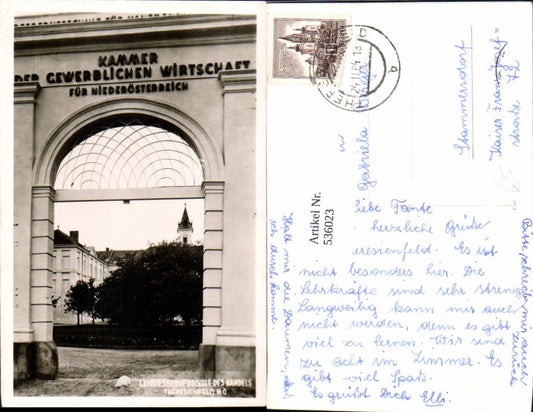 KAMMER
DER GEWERBLICHEN WIRTSCHAFT
FÜR NIEDERÖSTERREICH
LANDESBERUFSSCHULE DES HANDELS
THERESIENFELD, N.Ö.
Artikel Nr.
536023
Gabriela
Stammersdorf
Kaiser Franz Josef-
Liebe Tante
herzliche Grüße
eresienfeld. Es ist
nicht besonders hier. Die
Lehrkräfte sind sehr strenge
Langweilig kann mir auch
nicht werden, denn es gibt
viel zu lernen. Wir sind
zu acht im Zimmer. Es
gibt viel Spaß.
Es grüßt Dich Elli.
Halt mir die Daumen,
durch komme.
Bitte schreib mir auch
zurück